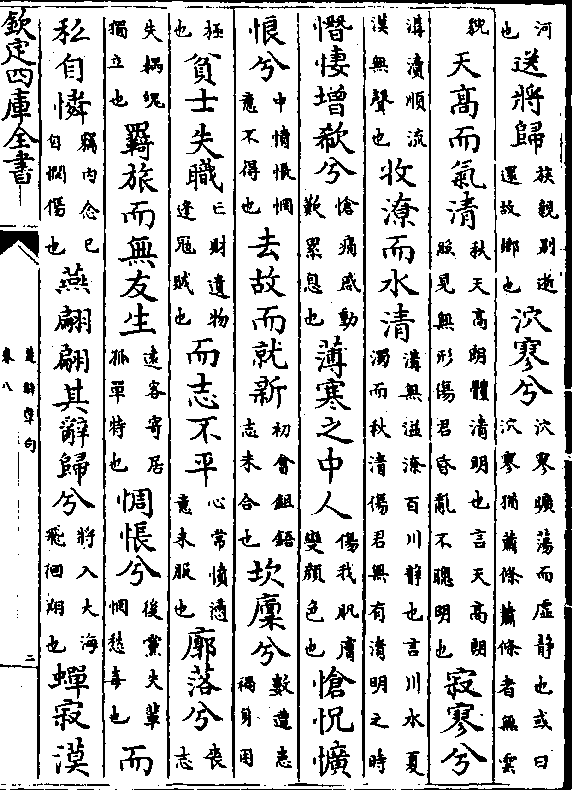 河也送將歸族親别逝還故鄉也泬寥兮泬寥曠蕩而虛静也或曰泬寥猶蕭條蕭條者無雲
貌天高而氣清秋天高朗體清明也言天高朗照見無形傷君昏亂不聰明也寂寥兮
溝瀆順流漠無聲也收潦而水清溝無溢潦百川静也言川水夏濁而秋清傷君無有清明之時
憯悽增欷兮愴痛感動歎累息也薄寒之中人傷我肌膚變顔色也愴怳懭
悢兮中情悵惘意不得也去故而就新初會鉏鋙志未合也坎廩兮數遭患禍身困
極也貧士失職亡財遺物逢冦賊也而志不平心常憤懣意未服也廓落兮喪志
失耦塊獨立也羇旅而無友生遠客寄居孤單特也惆悵兮後黨失輩惘愁毒也而
私自憐竊内念己自憫傷也燕翩翩其辭歸兮將入大海飛徊翔也蟬寂漠
欽定四庫全書
楚辭章句
卷八
二